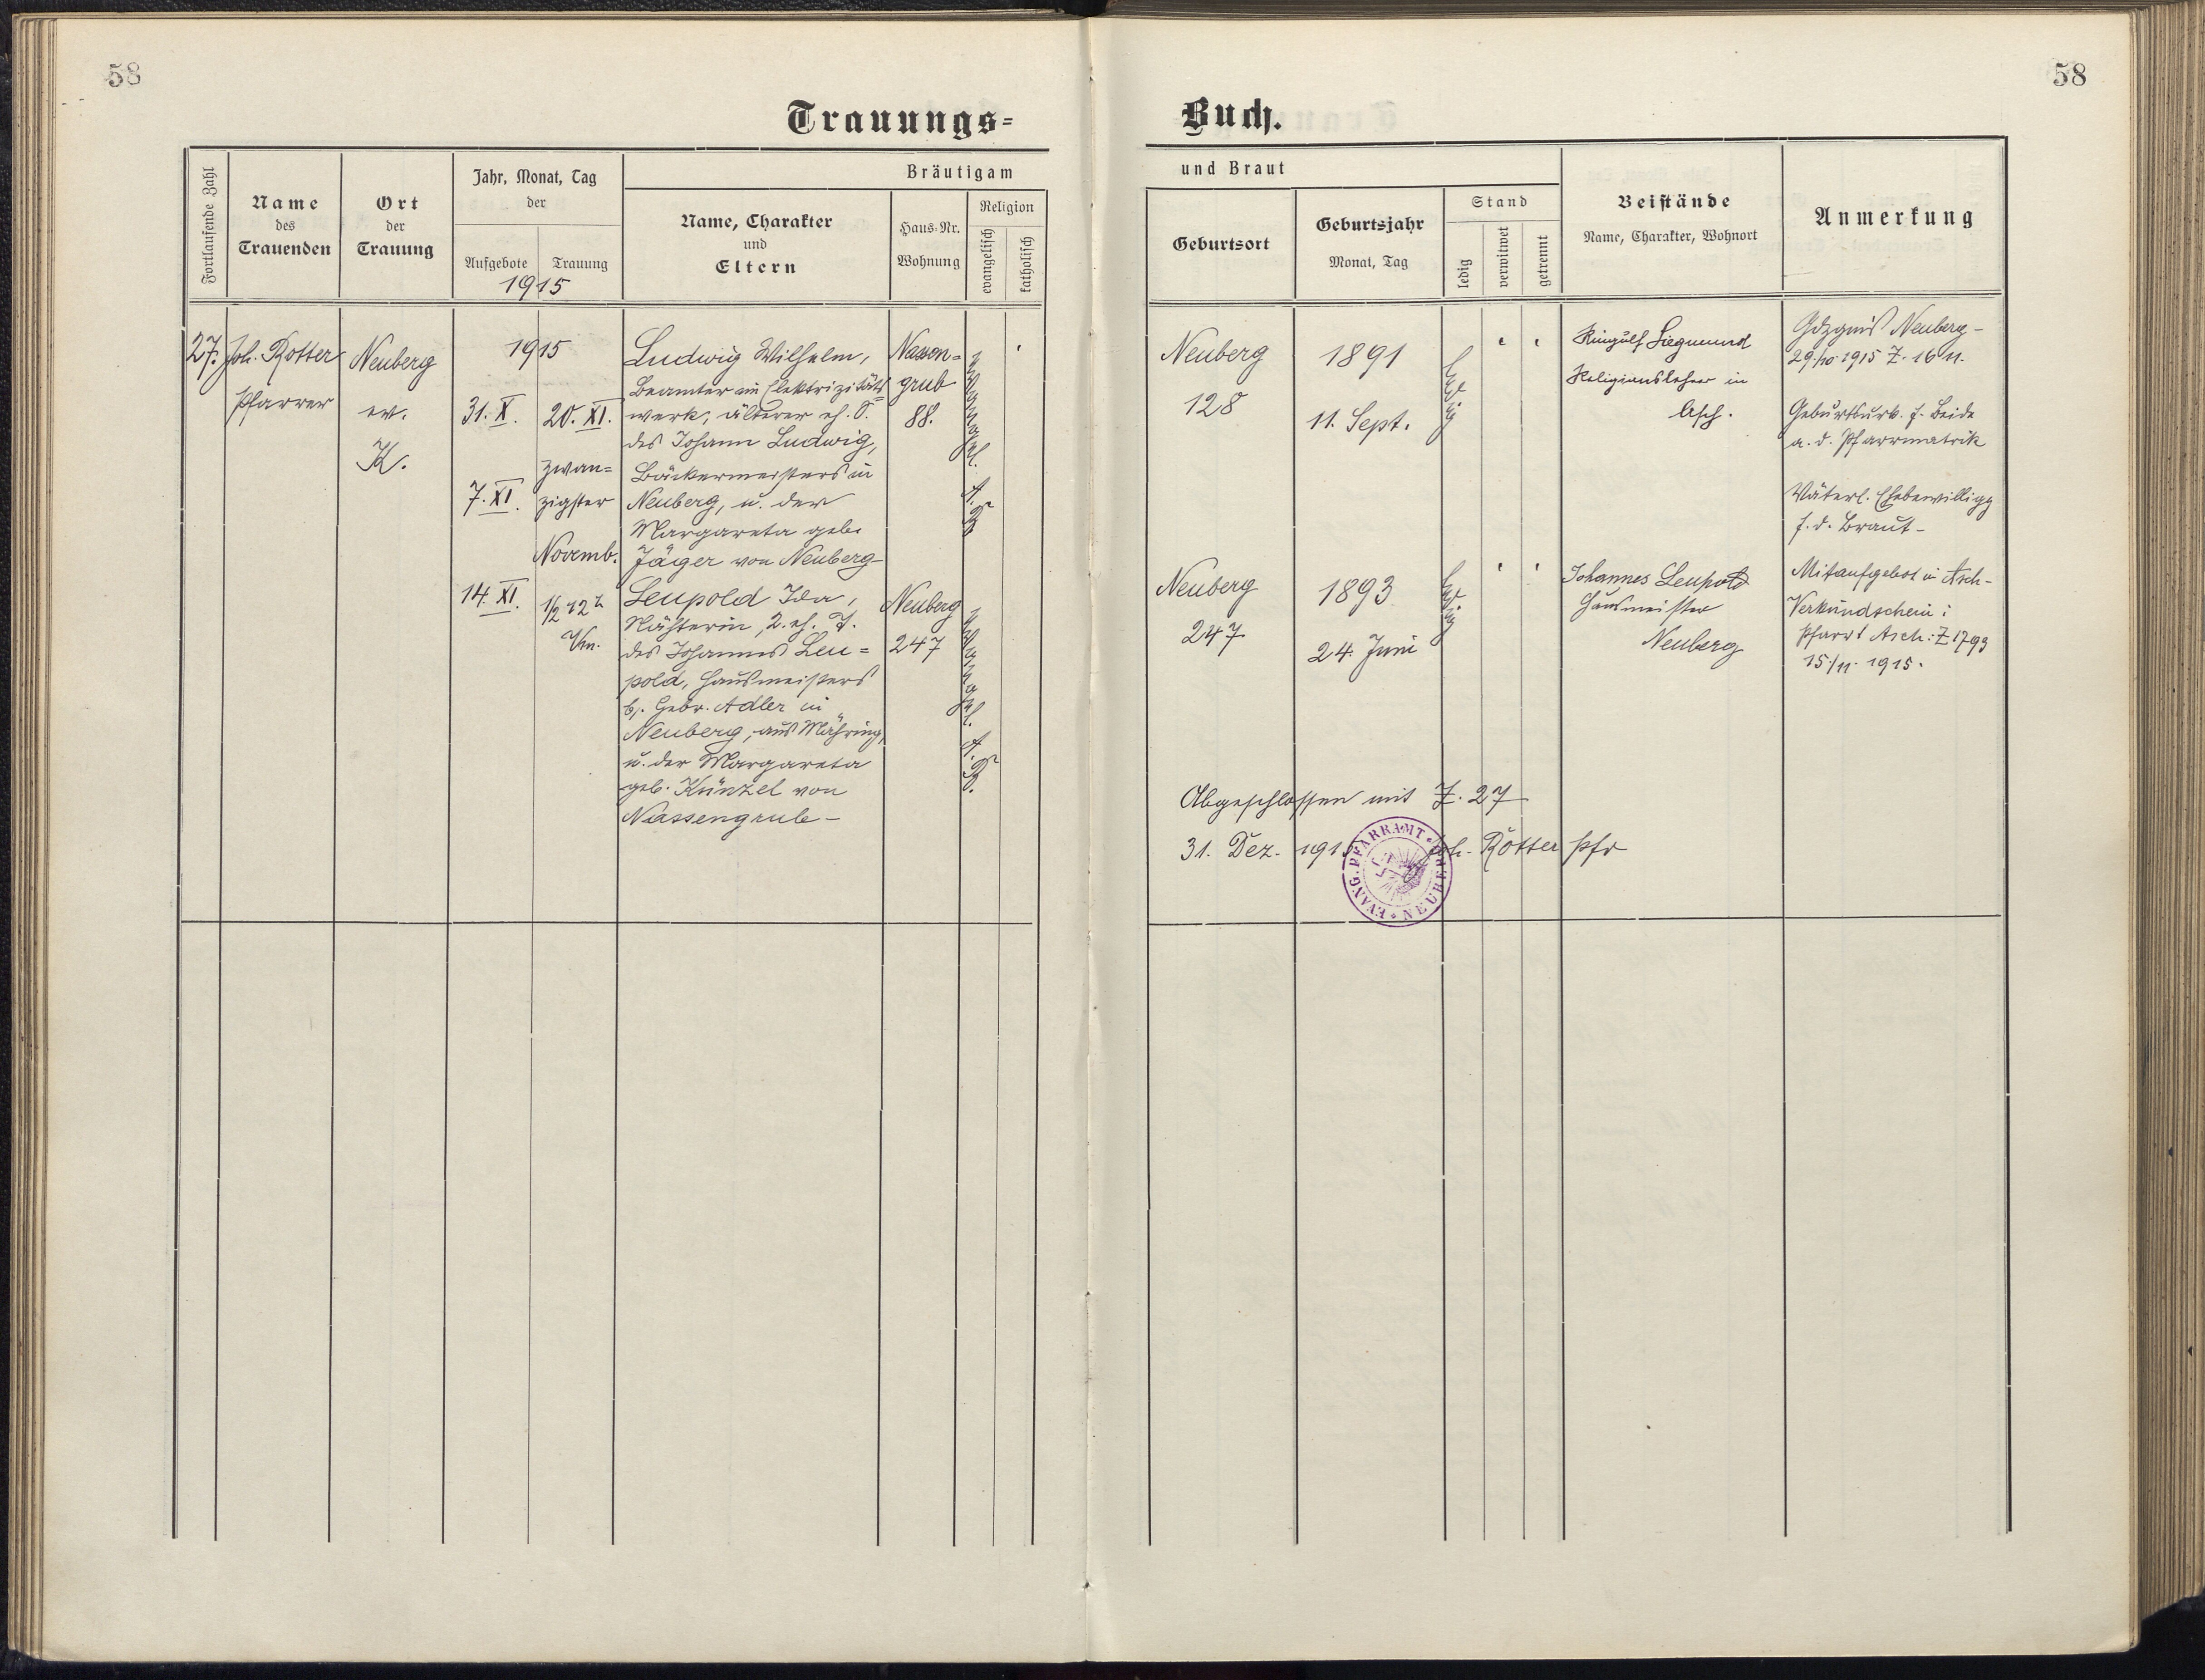 58
58
Trauungs=
Buch.
Fortlaufende Zahl
Name
des
Trauenden
Ort
der
Trauung
Jahr, Monat, Tag
der
Aufgebote
Trauung
1915
Bräutigam
Name, Charakter
und
Eltern
Haus-Nr.
Wohnung
Religion
evangelisch
katholisch
und Braut
Geburtsort
Geburtsjahr
Monat, Tag
Stand
ledig
verwitwet
getrennt
Beistände
Name, Charakter, Wohnort
Anmerkung
27.
Joh. Rotter
Pfarrer
Neuberg
ev.
K.
1915
31. X.
7. XI.
14. XI.
20. XI.
zwan=
zigster
Novemb.
1/2 12 h
Vm.
Ludwig Wilhelm,
Beamter im Elektrizitäts
werk, älterer eh. S.
des Johann Ludwig,
Bäckermeisters in
Neuberg, u. der
Margareta geb.
Jäger von Neuberg-
Nassen=
grub
88.
evangel.
A.
B.
Neuberg
128
1891
11. Sept.
ledig
Siegmund
Religionslehrer in
Asch.
Neuberg-
29/10 1915 Z. 1611.
Geburtsurk. f. Beide
a. d. Pfarrmatrik
Väterl. Ehebewilligg
f. d. Braut-
Leupold Ida,
Näherin, 2. eh. T.
des Johannes Leu=
pold, Hausmeisters
b. Gebr. Adler in
Neuberg, aus Mähring,
u. der Margareta
geb. Künzel von
Nassengrub-
Neuberg
247
evangel.
A.
B.
Neuberg
247
1893
24. Juni
ledig
Johannes Leupold
Hausmeister
Neuberg
Mitaufgebot in Asch-
Verkündschein:
Pfarrt Asch: Z 1793
15/11. 1915.
Abgeschlossen mit Z. 27
31. Dez. 1915 Joh. Rotter Pfr
EVANG. PFARRAMT NEUBERG